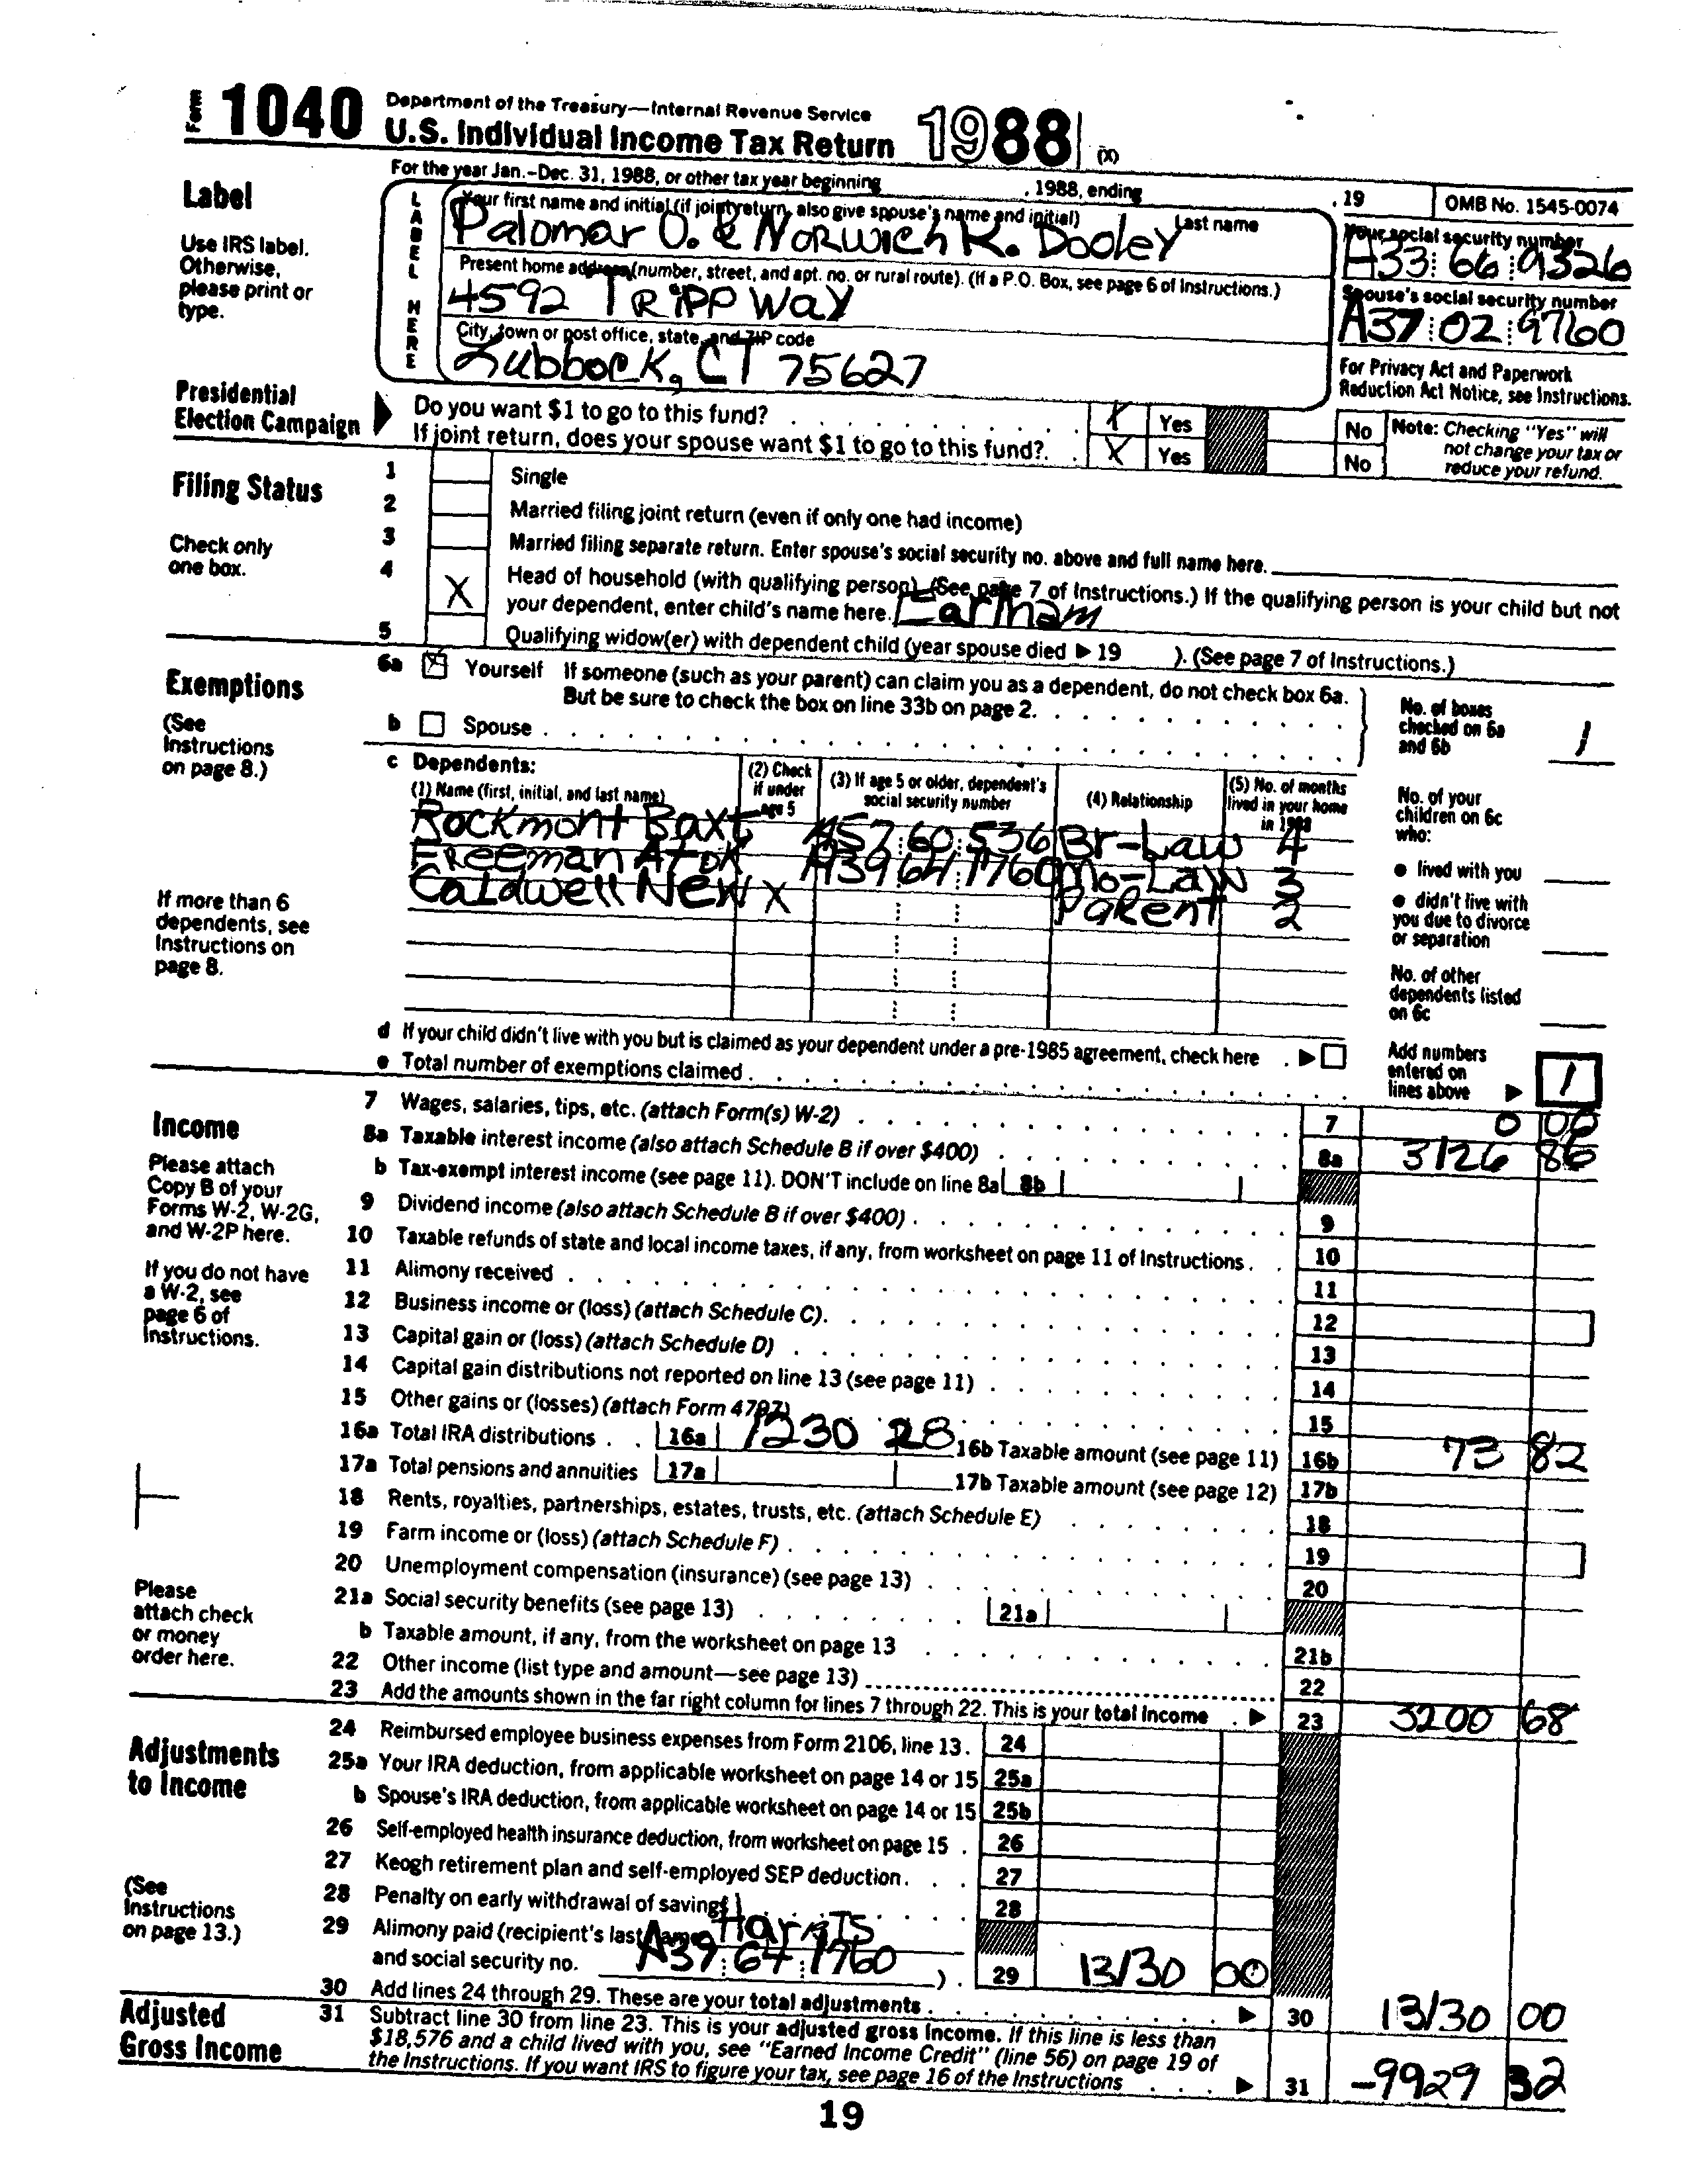 Form 1040 Department of the Treasury—Internal Revenue Service
U.S. Individual Income Tax Return 1988 (X)
For the year Jan.-Dec. 31, 1988, or other tax year beginning , 1988, ending , 19 OMB No. 1545-0074
Label
Use IRS label. Otherwise, please print or type.
LABEL HERE
Your first name and initial (if joint return, also give spouse's name and initial) Last name
Palomar O. & Norwich K. Dooley
Your social security number
A33 66 9326
Present home address (number, street, and apt. no. or rural route). (If a P.O. Box, see page 6 of Instructions.)
4592 Tripp Way
Spouse's social security number
A37 02 9760
City, town or post office, state, and ZIP code
Lubbock, CT 75627
For Privacy Act and Paperwork Reduction Act Notice, see Instructions.
Presidential Election Campaign
Do you want $1 to go to this fund? X Yes No
If joint return, does your spouse want $1 to go to this fund? X Yes No
Note: Checking "Yes" will not change your tax or reduce your refund.
Filing Status
Check only one box.
1 Single
2 Married filing joint return (even if only one had income)
3 Married filing separate return. Enter spouse's social security no. above and full name here.
4 X Head of household (with qualifying person). (See page 7 of Instructions.) If the qualifying person is your child but not
your dependent, enter child's name here. Earlham
5 Qualifying widow(er) with dependent child (year spouse died ▶ 19 ). (See page 7 of Instructions.)
Exemptions
(See Instructions on page 8.)
6a X Yourself If someone (such as your parent) can claim you as a dependent, do not check box 6a.
But be sure to check the box on line 33b on page 2.
b Spouse
No. of boxes checked on 6a and 6b 1
c Dependents:
(1) Name (first, initial, and last name) (2) Check if under age 5 (3) If age 5 or older, dependent's social security number (4) Relationship (5) No. of months lived in your home in 1988
Rockmont Baxt A57 60 536 Br-Law 4
Freeman Atok A39 64 1760 Mo-Law 3
Caldwell New X Parent 2
No. of your children on 6c who:
● lived with you
● didn't live with you due to divorce or separation
No. of other dependents listed on 6c
If more than 6 dependents, see Instructions on page 8.
d If your child didn't live with you but is claimed as your dependent under a pre-1985 agreement, check here ▶
e Total number of exemptions claimed
Add numbers entered on lines above ▶ 1
Income
Please attach Copy B of your Forms W-2, W-2G, and W-2P here.
If you do not have a W-2, see page 6 of Instructions.
Please attach check or money order here.
7 Wages, salaries, tips, etc. (attach Form(s) W-2) 7 0 00
8a Taxable interest income (also attach Schedule B if over $400) 8a 3126 86
b Tax-exempt interest income (see page 11). DON'T include on line 8a 8b
9 Dividend income (also attach Schedule B if over $400) 9
10 Taxable refunds of state and local income taxes, if any, from worksheet on page 11 of Instructions 10
11 Alimony received 11
12 Business income or (loss) (attach Schedule C) 12
13 Capital gain or (loss) (attach Schedule D) 13
14 Capital gain distributions not reported on line 13 (see page 11) 14
15 Other gains or (losses) (attach Form 4797) 15
16a Total IRA distributions 16a 1230 28 16b Taxable amount (see page 11) 16b 73 82
17a Total pensions and annuities 17a 17b Taxable amount (see page 12) 17b
18 Rents, royalties, partnerships, estates, trusts, etc. (attach Schedule E) 18
19 Farm income or (loss) (attach Schedule F) 19
20 Unemployment compensation (insurance) (see page 13) 20
21a Social security benefits (see page 13) 21a
b Taxable amount, if any, from the worksheet on page 13 21b
22 Other income (list type and amount—see page 13) 22
23 Add the amounts shown in the far right column for lines 7 through 22. This is your total income ▶ 23 3200 68
Adjustments to Income
(See Instructions on page 13.)
24 Reimbursed employee business expenses from Form 2106, line 13. 24
25a Your IRA deduction, from applicable worksheet on page 14 or 15 25a
b Spouse's IRA deduction, from applicable worksheet on page 14 or 15 25b
26 Self-employed health insurance deduction, from worksheet on page 15 26
27 Keogh retirement plan and self-employed SEP deduction 27
28 Penalty on early withdrawal of savings 28
29 Alimony paid (recipient's last name Harris
and social security no. A39 64 1760 ) 29 13130 00
30 Add lines 24 through 29. These are your total adjustments ▶ 30 13130 00
Adjusted Gross Income
31 Subtract line 30 from line 23. This is your adjusted gross income. If this line is less than
$18,576 and a child lived with you, see "Earned Income Credit" (line 56) on page 19 of
the Instructions. If you want IRS to figure your tax, see page 16 of the Instructions ▶ 31 -9929 32
19